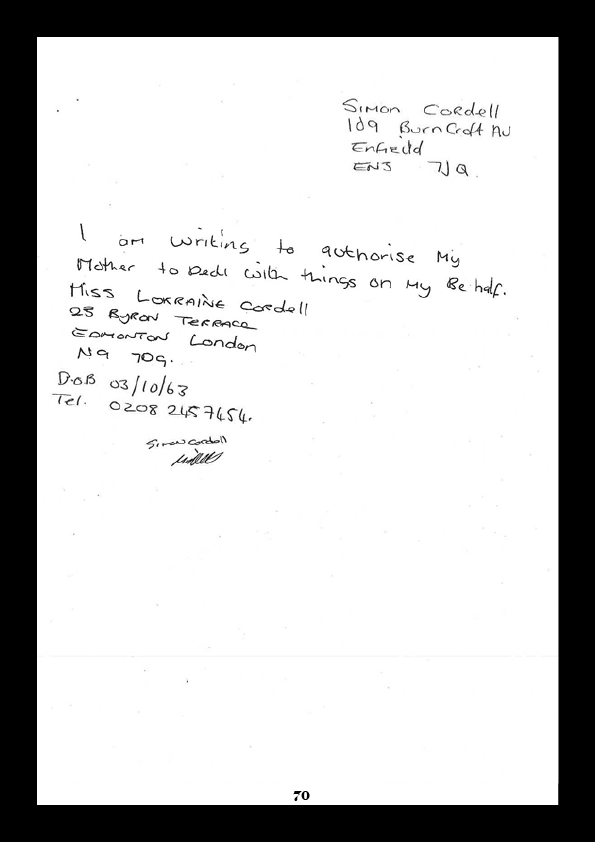 Simon Cordell
109 Burncroft AV
Enfield
EN3 7JQ.
I am writing to authorise My
Mother to Deal with things on My Behalf.
Miss Lorraine Cordell
23 Byron Terrace
Edmonton London
N9 7DG.
D.O.B 03/10/63
Tel. 0208 2457454.
Simon Cordell
70